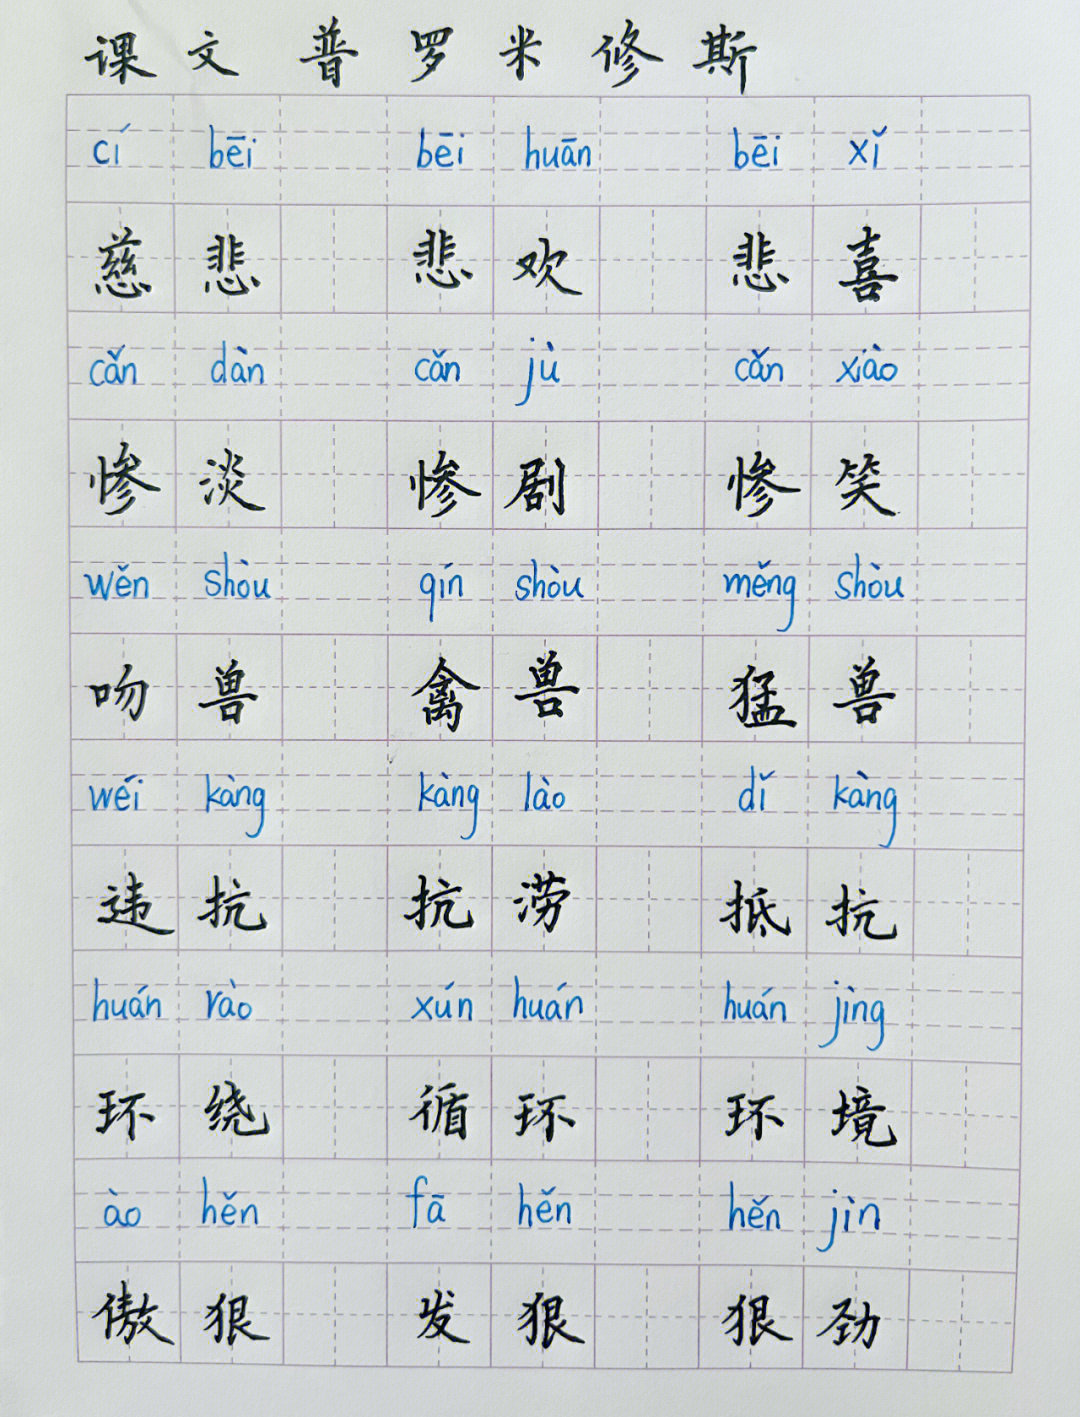 课文 普罗米修斯
cí bēi bēi huān bēi xǐ
慈悲 悲欢 悲喜
cǎn dàn cǎn jù cǎn xiào
惨淡 惨剧 惨笑
wěn shòu qín shòu měng shòu
吻兽 禽兽 猛兽
wéi kàng kàng lào dǐ kàng
违抗 抗涝 抵抗
huán rào xún huán huán jìng
环绕 循环 环境
ào hěn fā hěn hěn jìn
傲狠 发狠 狠劲